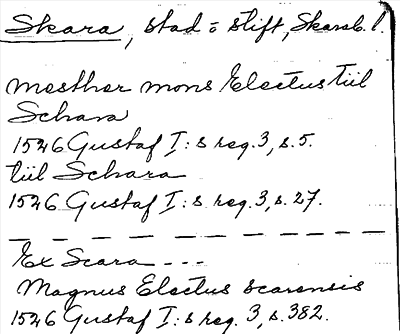 Skara, stad o stift, Skarab. l.
mesther mons Electus tiil
Schara
1526 Gustaf I:s reg. 3, s. 5.
tiil Schara
1526 Gustaf I:s reg. 3, s. 27.
Ex Scara ---
Magnus Electus scarensis
1526 Gustaf I:s reg. 3, s. 382.